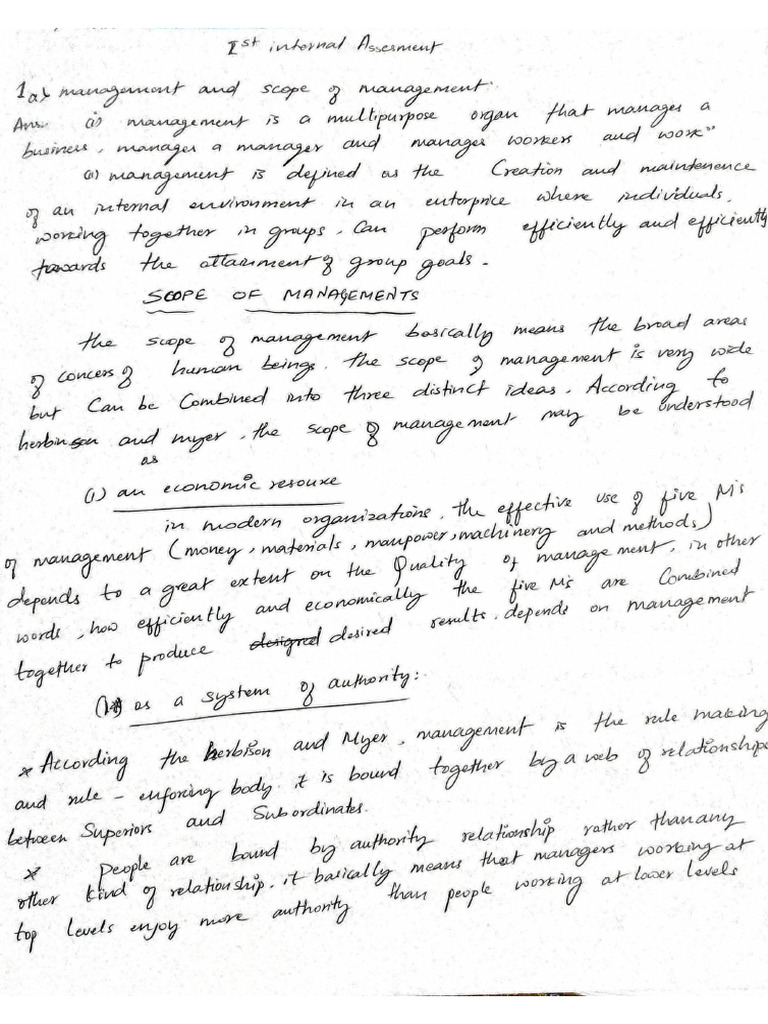 Ist internal Assesment
1a) management and scope of management.
Ans: (i) management is a multipurpose organ that manages a
business, manages a manager and manages workers and work"
(ii) management is defined as the Creation and maintenence
of an internal environment in an enterprice where individuals,
working together in groups, Can perform efficiently and efficiently
towards the attainment of group goals.
SCOPE OF MANAGEMENTS
the scope of management basically means the broad areas
of concers of human beings. the scope of management is very wide
but Can be Combined into three distinct ideas. According to
herbinson and myer, the scope of management may be understood
as
(i) an economic resouxe
in modern organizations, the effective use of five M's
of management (money, materials, manpower, machinery and methods)
depends to a great extent on the Quality of management, in other
words, how efficiently and economically the five M's are Combined
together to produce designed desired results. depends on management
(ii) as a system of authority:
* According the herbison and Myer, management is the rule making
and rule - enforing body. it is bound together by a web of relationships
between Superiors and Subordinates.
* People are bound by authority relationship rather than any
other kind of relationship. it basically means that managers working at
top levels enjoy more authority than people working at lower levels